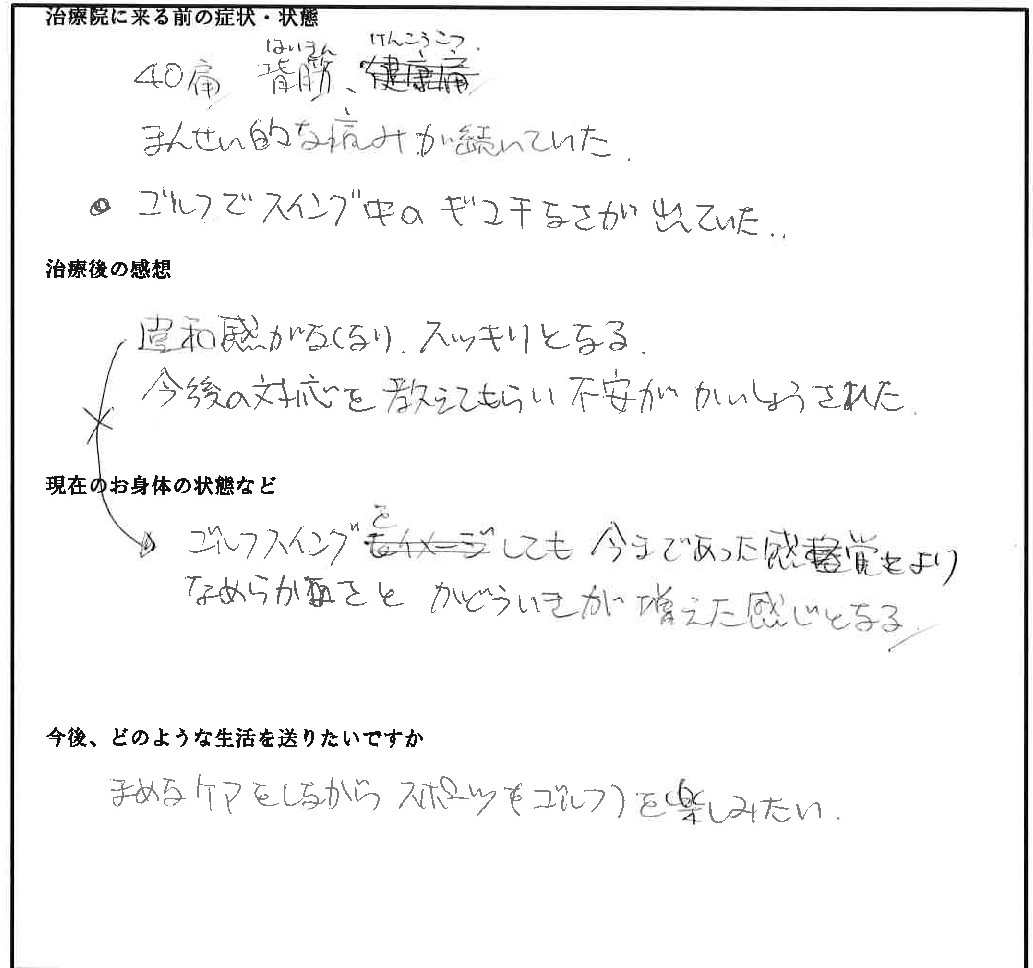 治療院に来る前の症状・状態
はいきん けんこうこつ
40痛 背筋、健康痛
まんせい的な痛みが続いていた.
ゴルフでスイング中のギコチなさが出ていた..
治療後の感想
違和感がなくなり. スッキリとなる.
今後の対応を教えてもらい不安がかいしょうされた.
現在のお身体の状態など
を
ゴルフスイング イメージしても 今まであった感覚をより
なめらかさと かどういきが増えた感じとなる
今後、どのような生活を送りたいですか
まめなケアをしながら スポーツ ゴルフ)を楽しみたい.